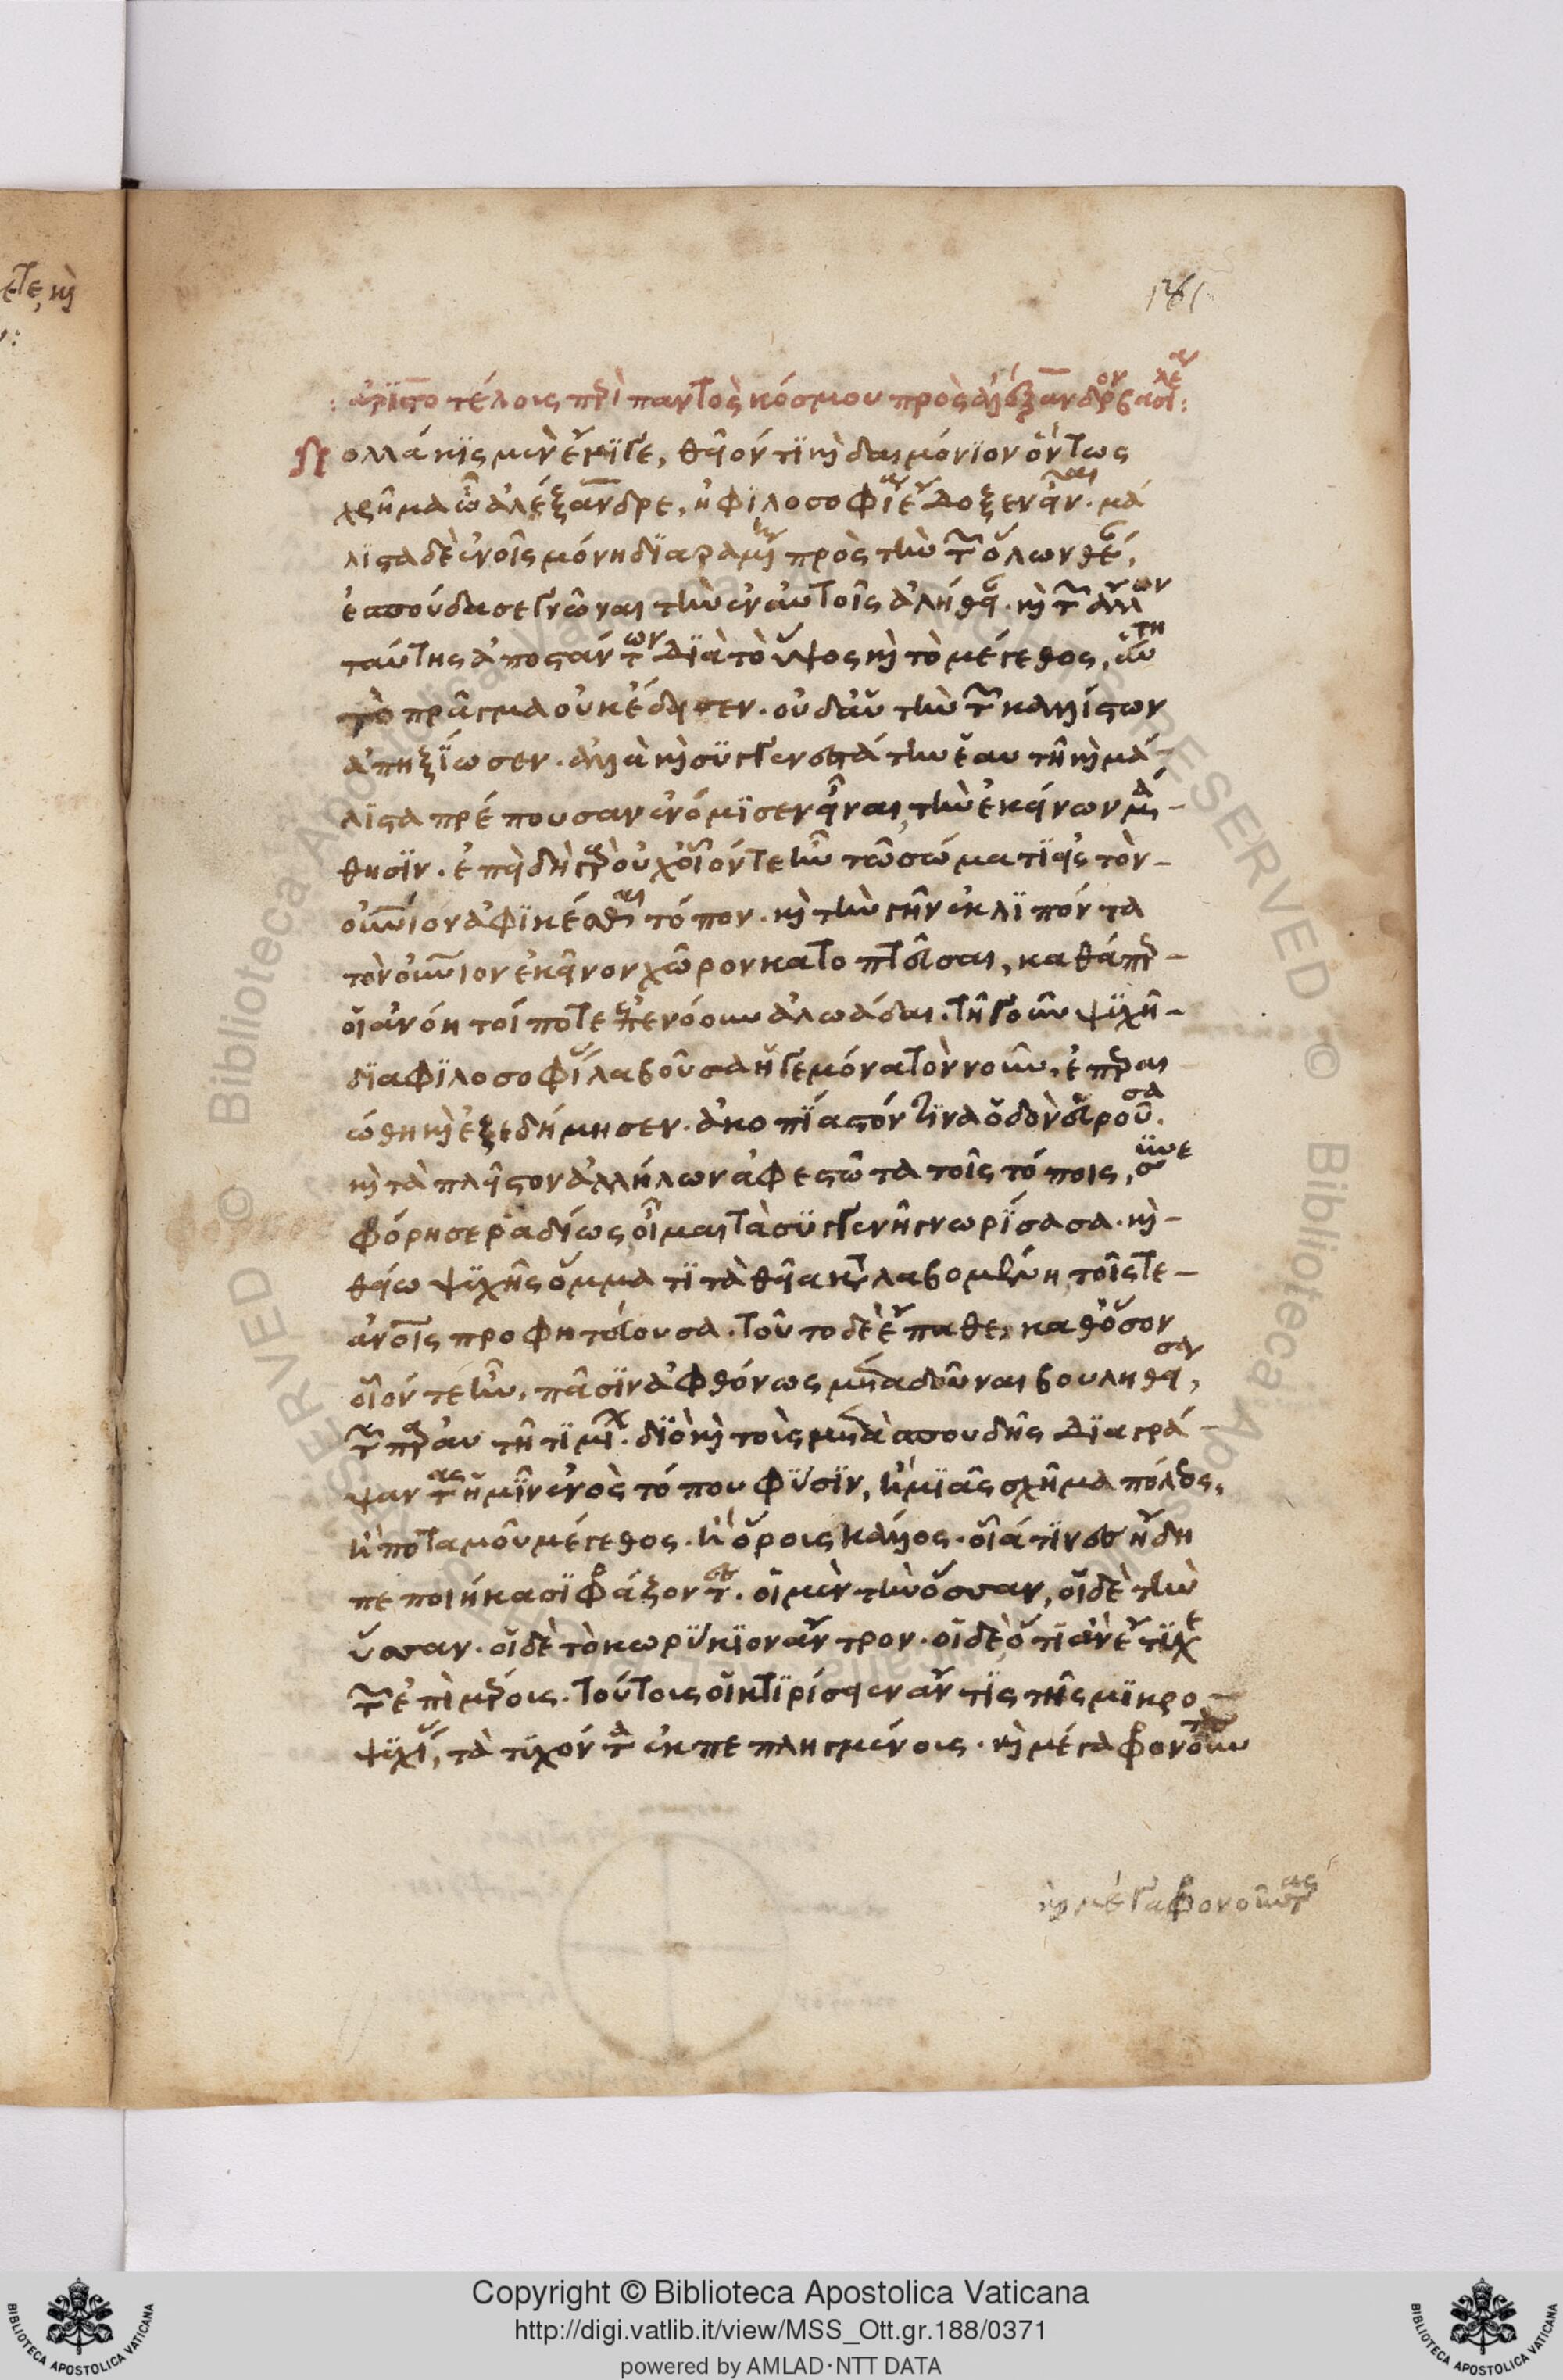 181
: ἀριστοτέλους περὶ παντὸς κόσμου πρὸς ἀλέξανδρον βασιλέα :
Πολλάκις μὲν ἔμοιγε, θεῖόν τι καὶ δαιμόνιον ὄντως
χρῆμα ὦ ἀλέξανδρε, ἡ φιλοσοφία ἔδοξεν εἶναι. μά
λιστα δὲ ἐν οἷς μόνη διαραμένη πρὸς τὴν τῶν ὅλων θέαν,
ἐσπούδασε γνῶναι τὴν ἐν αὐτοῖς ἀλήθειαν. καὶ τῶν ἄλλων
ταύτης ἀποστάντων διὰ τὸ ὕψος καὶ τὸ μέγεθος, αὕτη
τὸ πρᾶγμα οὐκ ἔδεισεν. οὐδ' αὑτὴν τῶν καλλίστων
ἀπηξίωσεν. ἀλλὰ καὶ συγγενεστάτην ἑαυτῇ καὶ μά
λιστα πρέπουσαν ἐνόμισεν εἶναι, τὴν ἐκείνων μά-
θησιν. ἐπειδὴ γὰρ οὐχ οἷόν τε ἦν τῷ σώματι εἰς τὸν-
οὐράνιον ἀφικέσθαι τόπον. καὶ τὴν γῆν ἐκλιπόντα
τὸν οὐράνιον ἐκεῖνον χῶρον κατοπτεῦσαι, καθάπερ-
οἱ ἀνόητοί ποτε ἐπενόουν ἀλωάδαι. τῇ γοῦν ψυχῇ-
διὰ φιλοσοφίας λαβοῦσα ἡγεμόνα τὸν νοῦν, ἐπεραι
ώθη καὶ ἐξεδήμησεν. ἀκοπίαστόν τινα ὁδὸν εὑροῦσα.
καὶ τὰ πλεῖστον ἀλλήλων ἀφεστῶτα τοῖς τόποις, συνε
φόρησε ῥαδίως οἶμαι τὰ συγγενῆ γνωρίσασα. καὶ-
θείῳ ψυχῆς ὄμματι τὰ θεῖα καταλαβομένη, τοῖς τε-
ἀνοις προφητεύουσα. τοῦτο δὲ ἔπαθε, καθόσον
οἷόν τε ἦν, πᾶσιν ἀφθόνως μεταδοῦναι βουληθεῖσα,
τῶν παρ' αὑτῇ τιμίων. διὸ καὶ τοὺς μετὰ σπουδῆς διαγρά-
ψαντας ἡμῖν ἑνὸς τόπου φύσιν, ἢ μιᾶς σχῆμα πόλεως,
ἢ ποταμοῦ μέγεθος. ἢ ὄρους κάλλος. οἷά τινες ἤδη
πεποιήκασι φράζοντες. οἱ μὲν τὴν ὄσσαν, οἱ δὲ τὴν
ὕσσαν. οἱ δὲ τὸ κωρύκιον ἄντρον. οἱ δὲ ὅτι ἂν ἔτυχε
τῶν ἐπὶ μέρους. τούτοις οἰκτιρίσειεν ἄν τις τῆς μικρο-
ψυχίας, τὰ τυχόντα ἐκπεπληγμένους. καὶ μέγα φρονοῦντας
καὶ μέγα φρονοῦντας
Copyright © Biblioteca Apostolica Vaticana
http://digi.vatlib.it/view/MSS_Ott.gr.188/0371
powered by AMLAD·NTT DATA